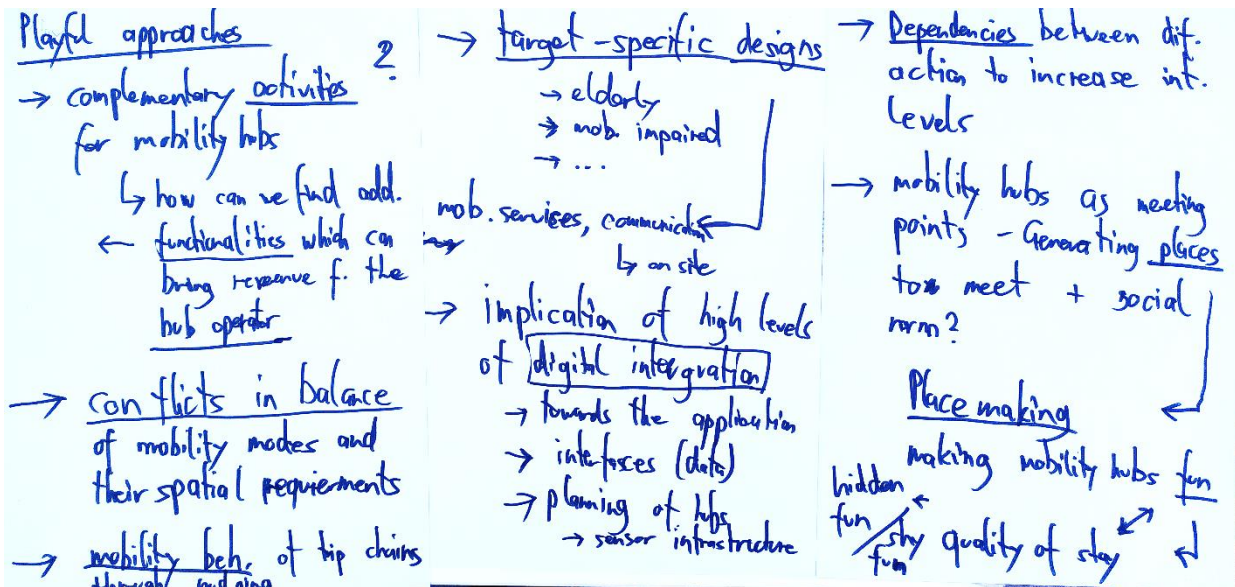 Playful approaches
?
→ complementary activities
for mobility hubs
↳ how can we find add.
← functionalities which can
bring revenue f. the
hub operator
→ conflicts in balance
of mobility modes and
their spatial requierments
→ mobility beh. of trip chains
→ target-specific designs
→ elderly
→ mob. impaired
→ ...
mob. services, communication
↳ on site
→ implication of high levels
of digital intergration
→ towards the application
→ interfaces (data)
→ planning of hubs
→ sensor infrastructure
→ Dependencies between dif.
action to increase int.
Levels
→ mobility hubs as meeting
points - Generating places
to meet + social
norm?
Place making
making mobility hubs fun
hidden
fun
fun
stay quality of stay